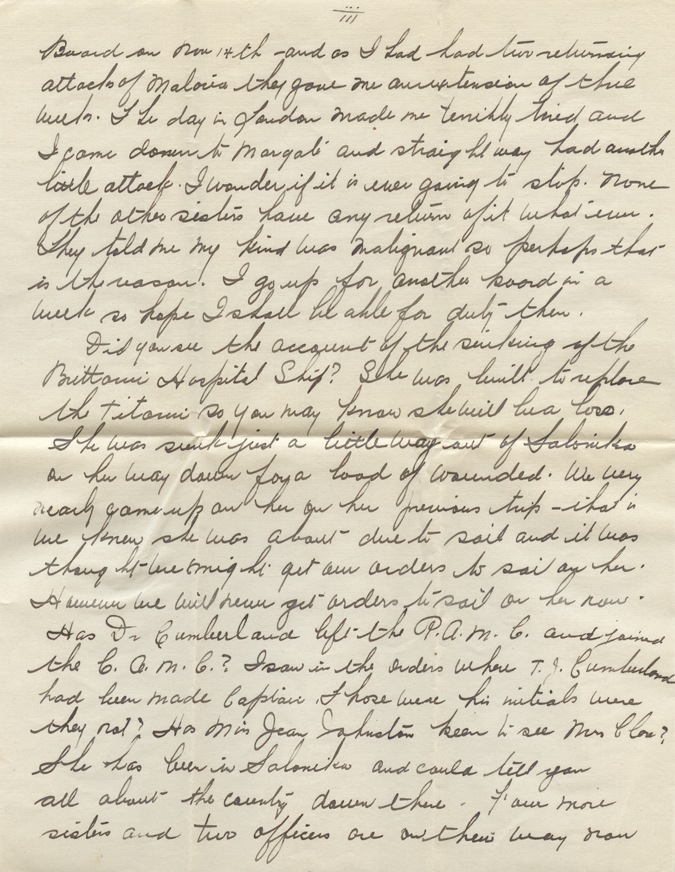 iii
Board on Nov 14th - and as I had had two returning
attacks of Malaria they gave me an extension of three
weeks. The day in London made me terribly tired and
I came down to Margate and straight way had another
little attack. I wonder if it is ever going to stop. None
of the other sisters have any return of it what ever.
They told me my kind was malignant so perhaps that
is the reason. I go up for another board in a
week so hope I shall be able for duty then.
Did you see the account of the sinking of the
Brittanic Hospital Ship? She was built to replace
the Titanic so you may know she will be a loss.
She was sunk just a little way out of Salonika
on her way down for a load of wounded. We very
nearly came up on her on her previous trip - that is
we knew she was about due to sail and it was
thought we might get our orders to sail on her.
However we will never get orders to sail on her now.
Has Dr Cumberland left the R.A.M.C. and joined
the C.A.M.C.? I saw in the orders where T.J. Cumberland
had been made Captain. Those were his initials were
they not? Has Miss Jean Johnston been to see Mrs Close?
She has been in Salonika and could tell you
all about the country down there. Four more
sisters and two officers are on their way now